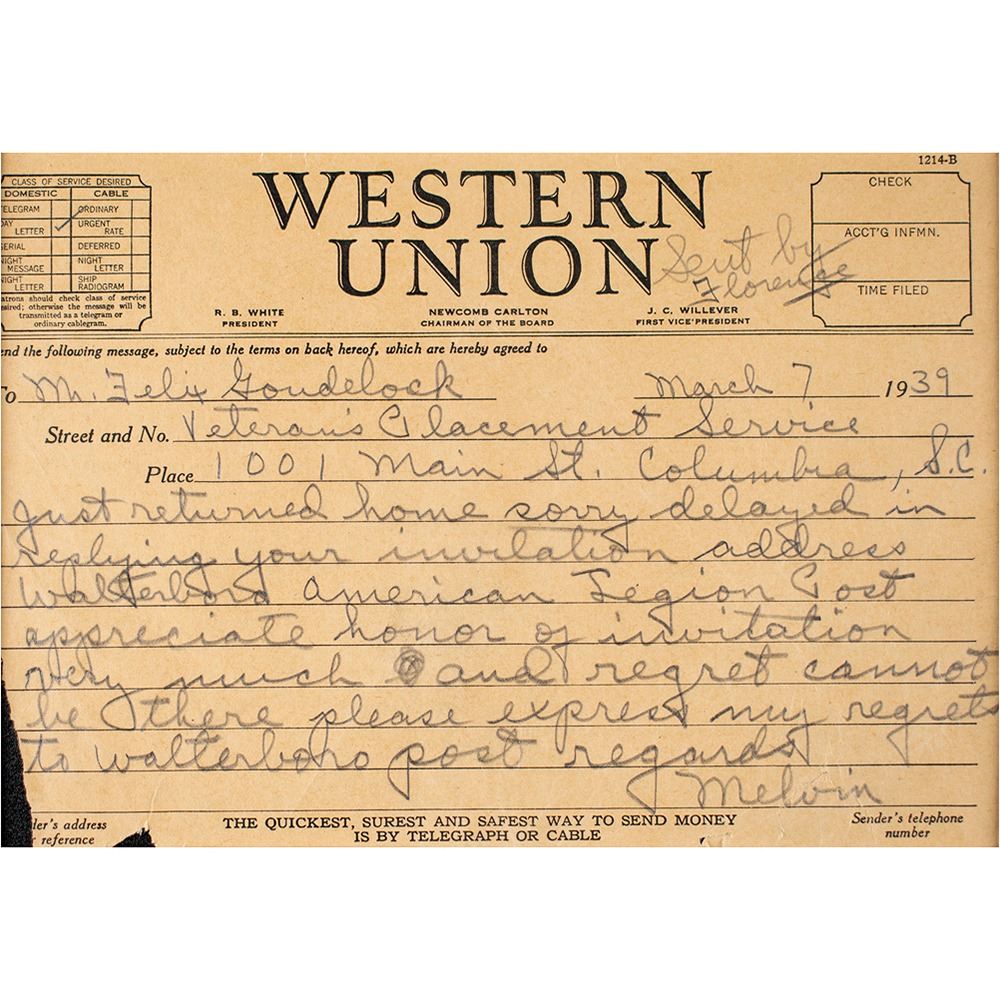 1214-B
CLASS OF SERVICE DESIRED
DOMESTIC CABLE
TELEGRAM ORDINARY
DAY LETTER ✓ URGENT RATE
SERIAL DEFERRED
NIGHT MESSAGE NIGHT LETTER
NIGHT LETTER SHIP RADIOGRAM
atrons should check class of service
esired; otherwise the message will be
transmitted as a telegram or
ordinary cablegram.
WESTERN
UNION
Sent by
Florence
R. B. WHITE
PRESIDENT
NEWCOMB CARLTON
CHAIRMAN OF THE BOARD
J. C. WILLEVER
FIRST VICE-PRESIDENT
CHECK
ACCT'G INFMN.
TIME FILED
end the following message, subject to the terms on back hereof, which are hereby agreed to
To Mr. Felix Goudelock March 7 1939
Street and No. Veteran's Placement Service
Place 1001 Main St. Columbia, S.C.
Just returned home sorry delayed in
replying your invitation address
Walterboro American Legion Post
appreciate honor of invitation
very much and regret cannot
be there please express my regrets
to Walterboro post regards
Melvin
der's address
r reference
THE QUICKEST, SUREST AND SAFEST WAY TO SEND MONEY
IS BY TELEGRAPH OR CABLE
Sender's telephone
number